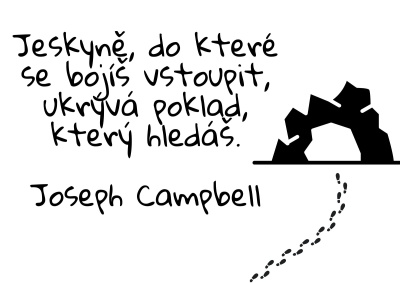 Jeskyně, do které
se bojíš vstoupit,
ukrývá poklad,
který hledáš.
Joseph Campbell